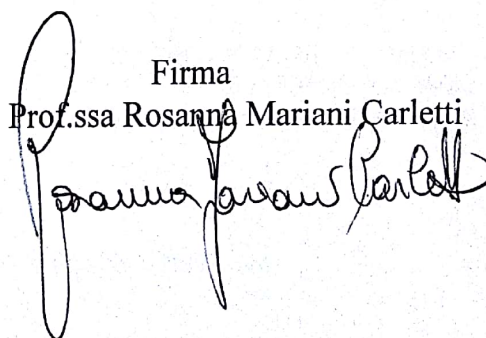 Firma
Prof.ssa Rosanna Mariani Carletti
Rosanna Mariani Carletti